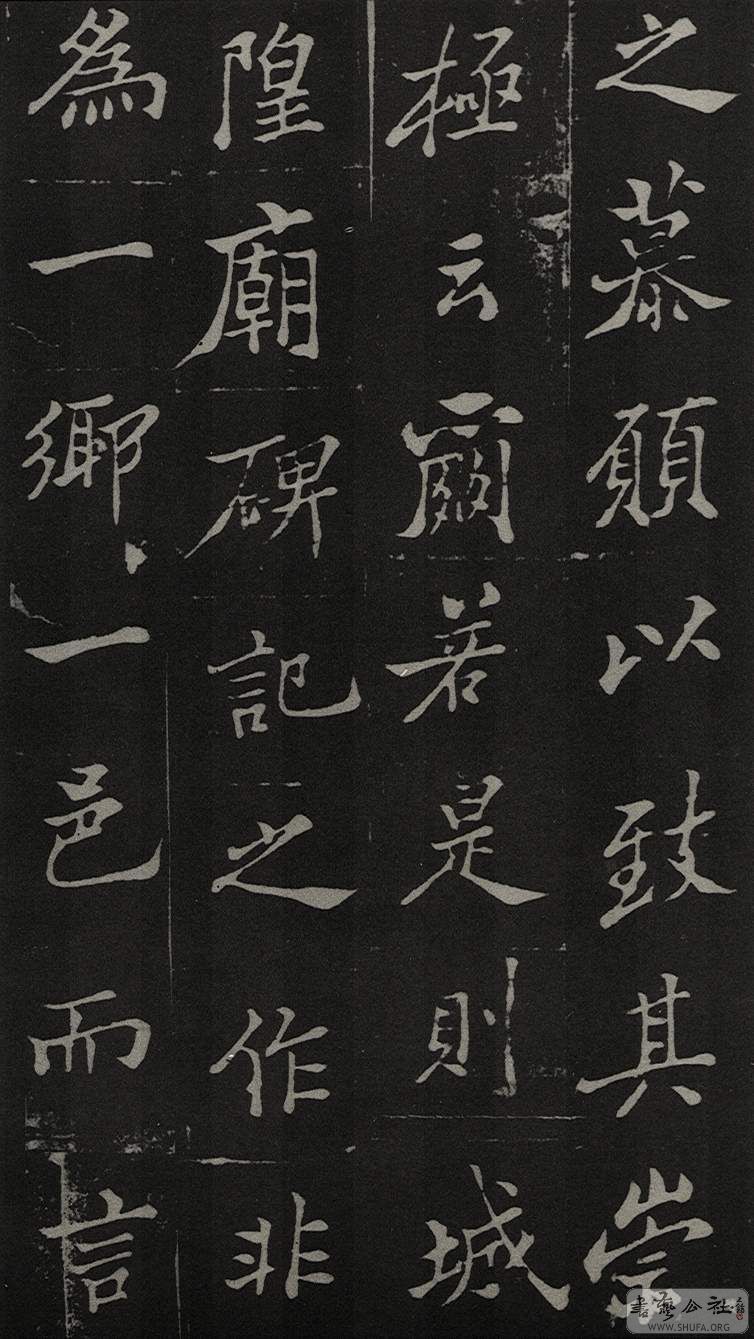 之慕願以致其崇
極云爾若是則城
隍廟碑記之作非
為一鄉一邑而言
書藝公社
WWW.SHUFA.ORG